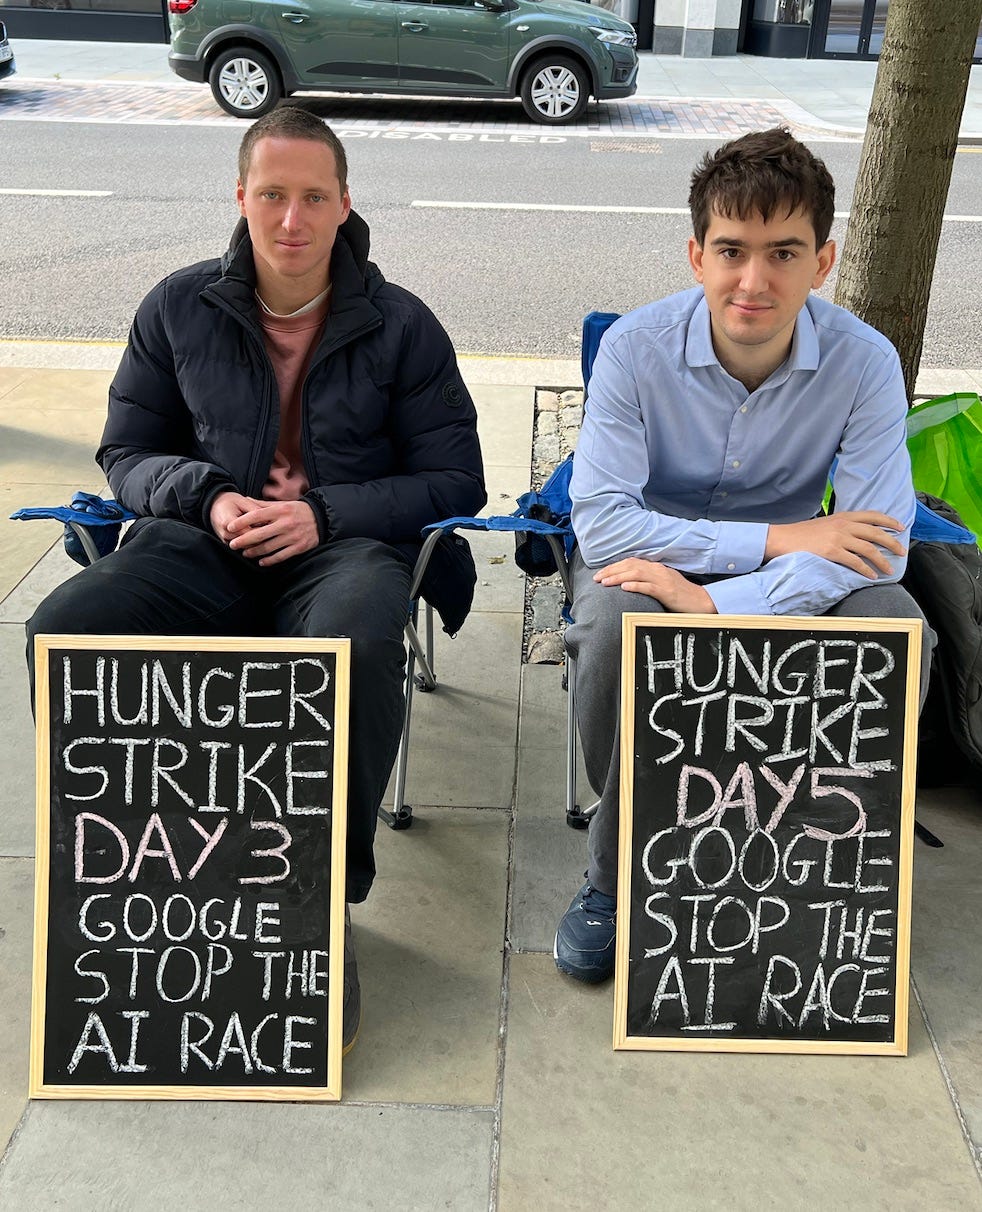 DISABLED
HUNGER
STRIKE
DAY 3
GOOGLE
STOP THE
AI RACE
HUNGER
STRIKE
DAY 5
GOOGLE
STOP THE
AI RACE